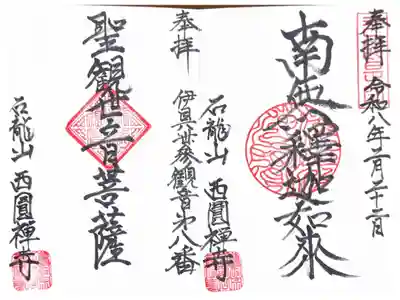 奉拝
令和八年二月二十二日
南無釋迦如来
石龍山 西圓禅寺
奉拝
伊具卅三観音第八番
聖観世音菩薩
石龍山 西圓禅寺